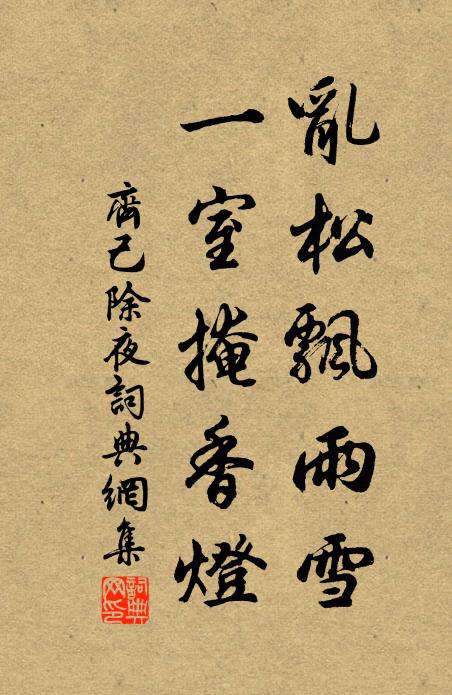 亂松飄雨雪
一室掩香燈
齊己除夜詞典網集
詞典网印